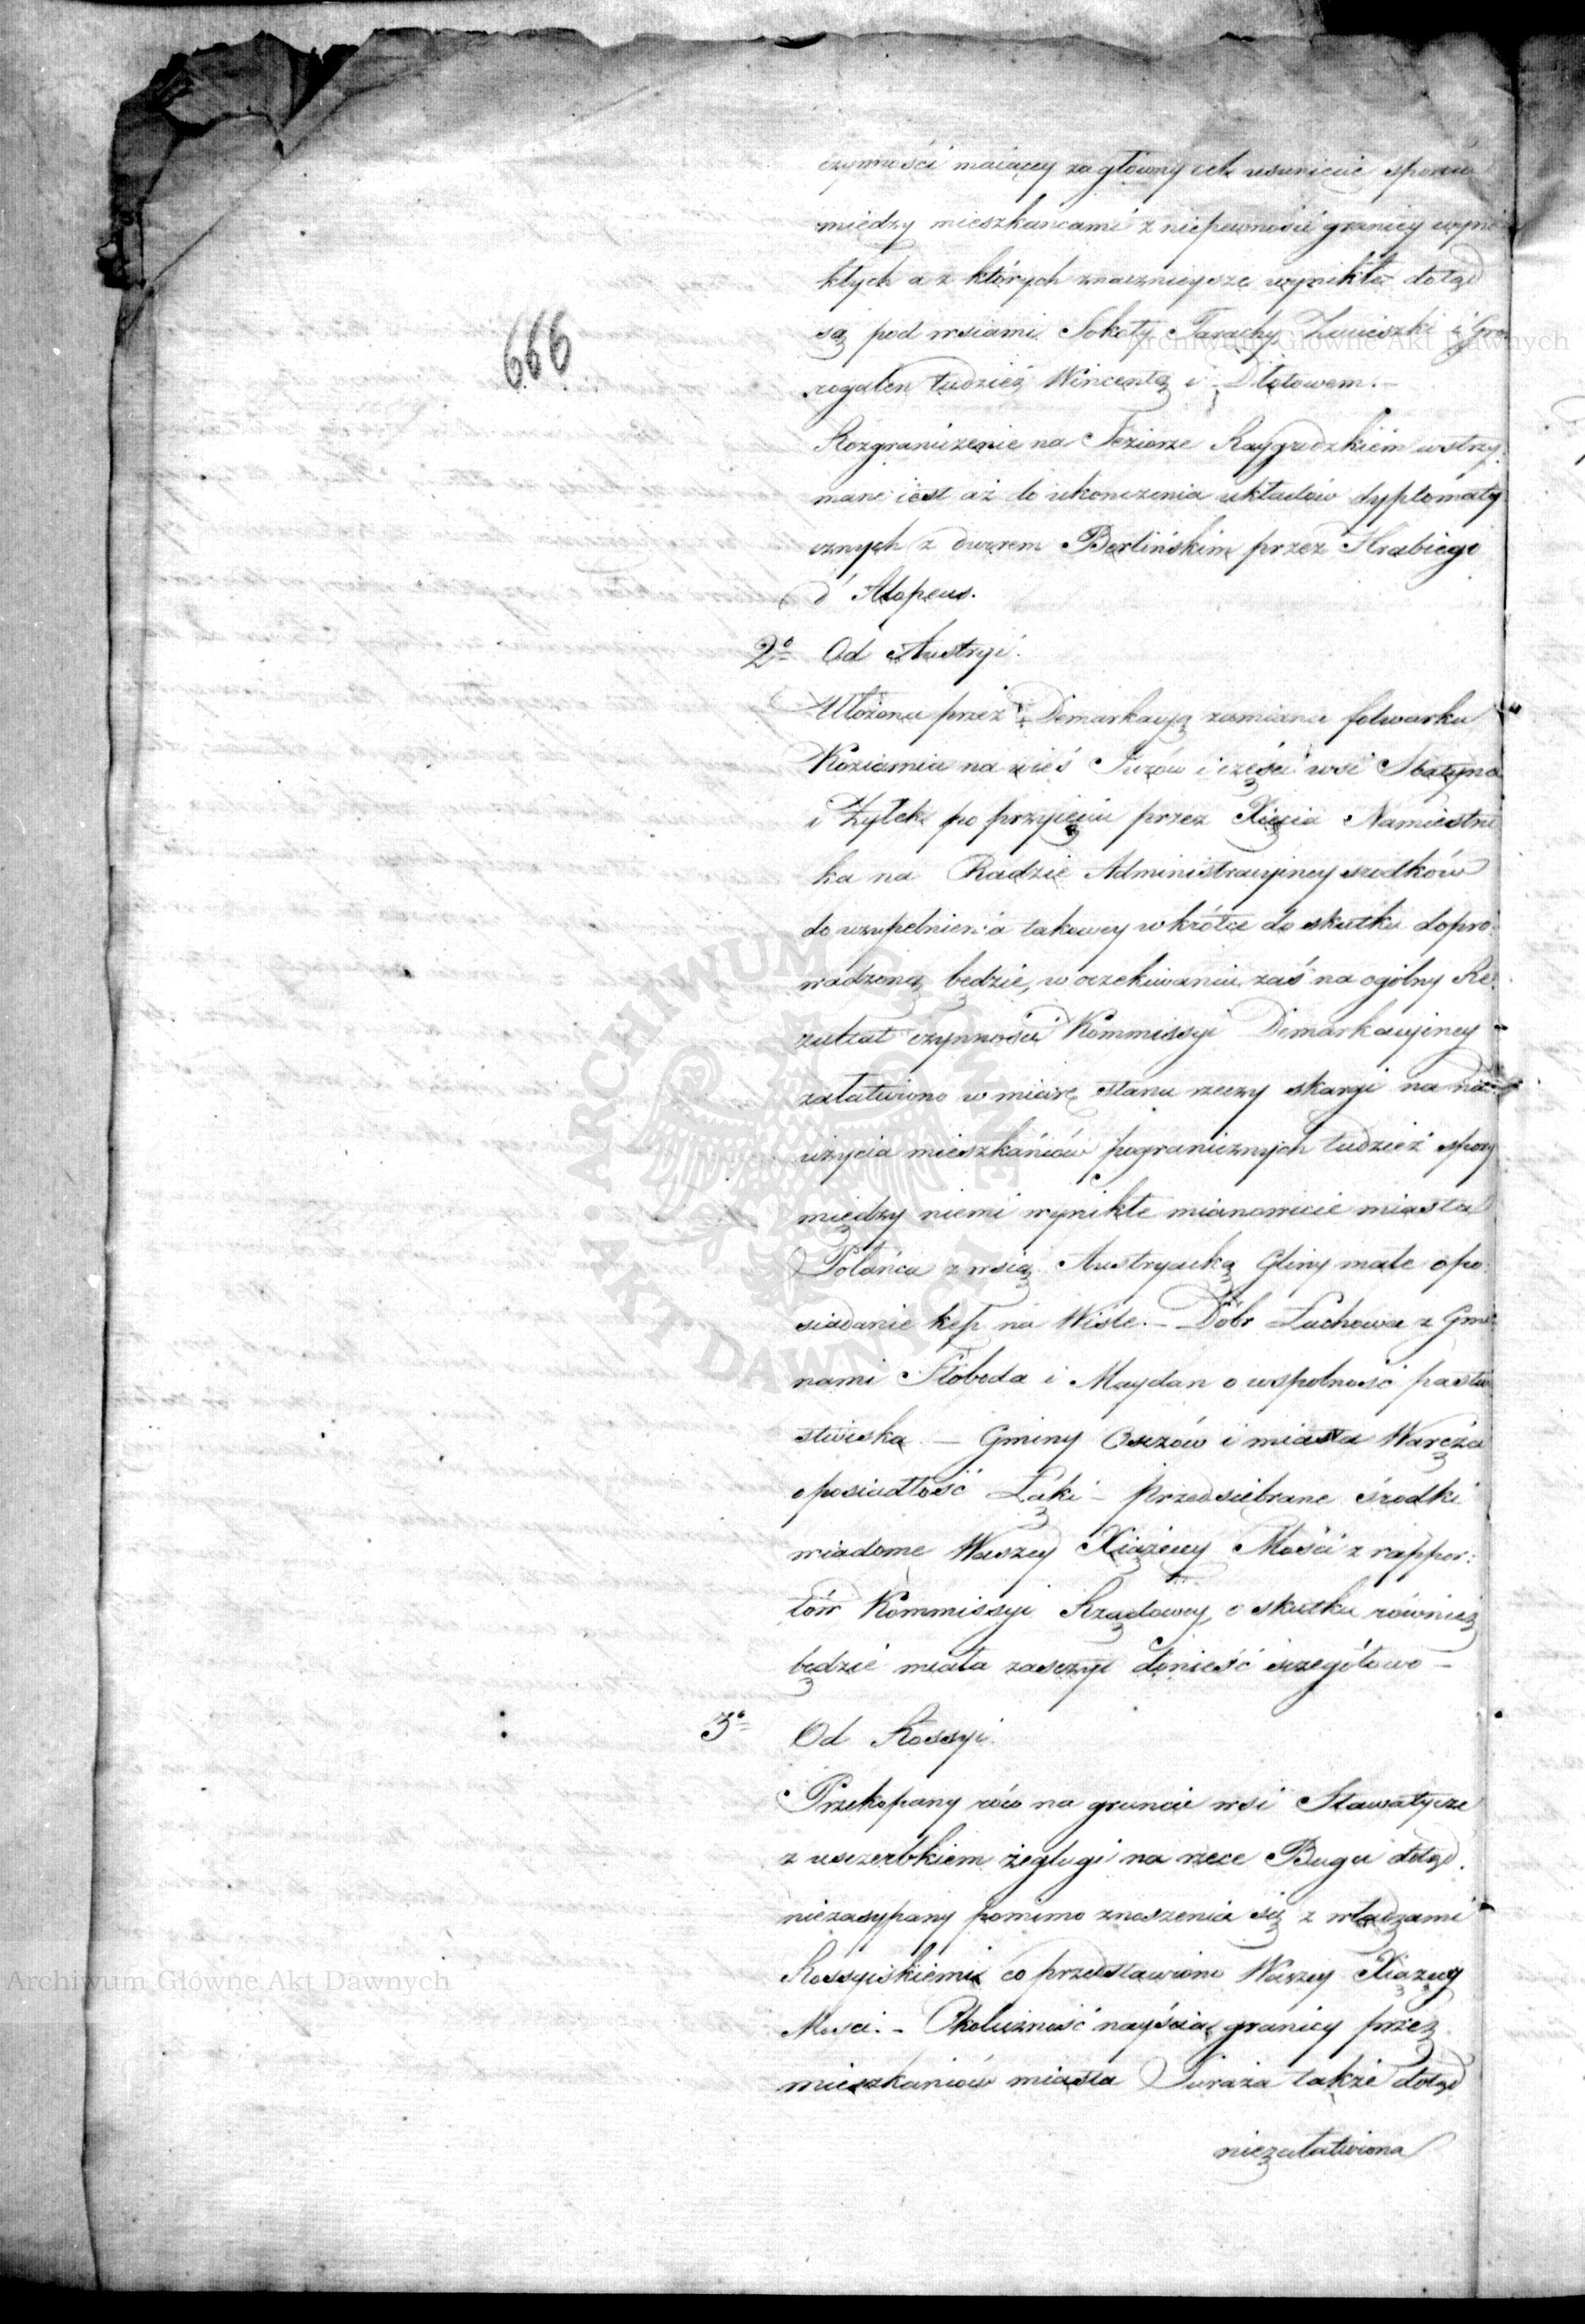 czynności maiącey za główny cel usunięcie sporów
między mieszkancami z niepewności granicy wyni
kłych a z których znacznieysze wynikłe dotąd
są pod wsiami Sokoły
rogalen tudzież Wincentą i Dłotowem. –
666
Rozgraniczenie na Jeziorze Raygrodzkiém wstrzy
mane iest aż do ukonczenia układów dyplomaty
cznych z dworem Berlińskim przez Hrabiego
d'Alopeus.
2o Od Austryi.
Ułożona przez Demarkacyą zamiana folwarku
Koziarnia na wieś Jurów i części wsi
i Żyłek po przyięciu przez Xięcia Namiestni
ka na Radzie Administracyiney srodków
do uzupełnienia takowey wkrótce do skutku dopro:
wadzoną będzie, w oczekiwaniu zaś na ogólny Re:
zultat czynności Kommissyi Demarkacyiney –
załatwiono w miarę stanu rzeczy skargi na na:
użycia mieszkańców pogranicznych tudzież spory
między niemi wynikłe mianowicie miasta
Połańca z wsią Austryacką Gliny małe o po:
siadanie kęp na Wiśle. – Dóbr Łuchowa z Gmi:
nami Słoboda i Maydan o wspolność pastw
stwiska – Gminy Oszczów i miasta Waręża
o posiadłość Łąki – przedsiębrane środki
wiadome Waszey Xiążęcey Mości z rappor:
tów Kommissyi Rządowey, o skutku również
będzie miała zaszczyt donieść szczegółowo –
3o Od Rossyi.
Przekopany rów na gruncie wsi Sławatycze
z uszczerbkiem żeglugi na rzece Bugu dotąd
niezasypany pomimo znoszenia się z władzami
Rossyiskiemi co przedstawiono Waszey Xiążęcy
Mosci. – Okoliczność nayścia granicy przez
mieszkańców miasta Suraża także dotąd
niezałatwiona
Archiwum Główne Akt Dawnych
ARCHIWUM GŁÓWNE • AKT DAWNYCH •
Archiwum Główne Akt Dawnych